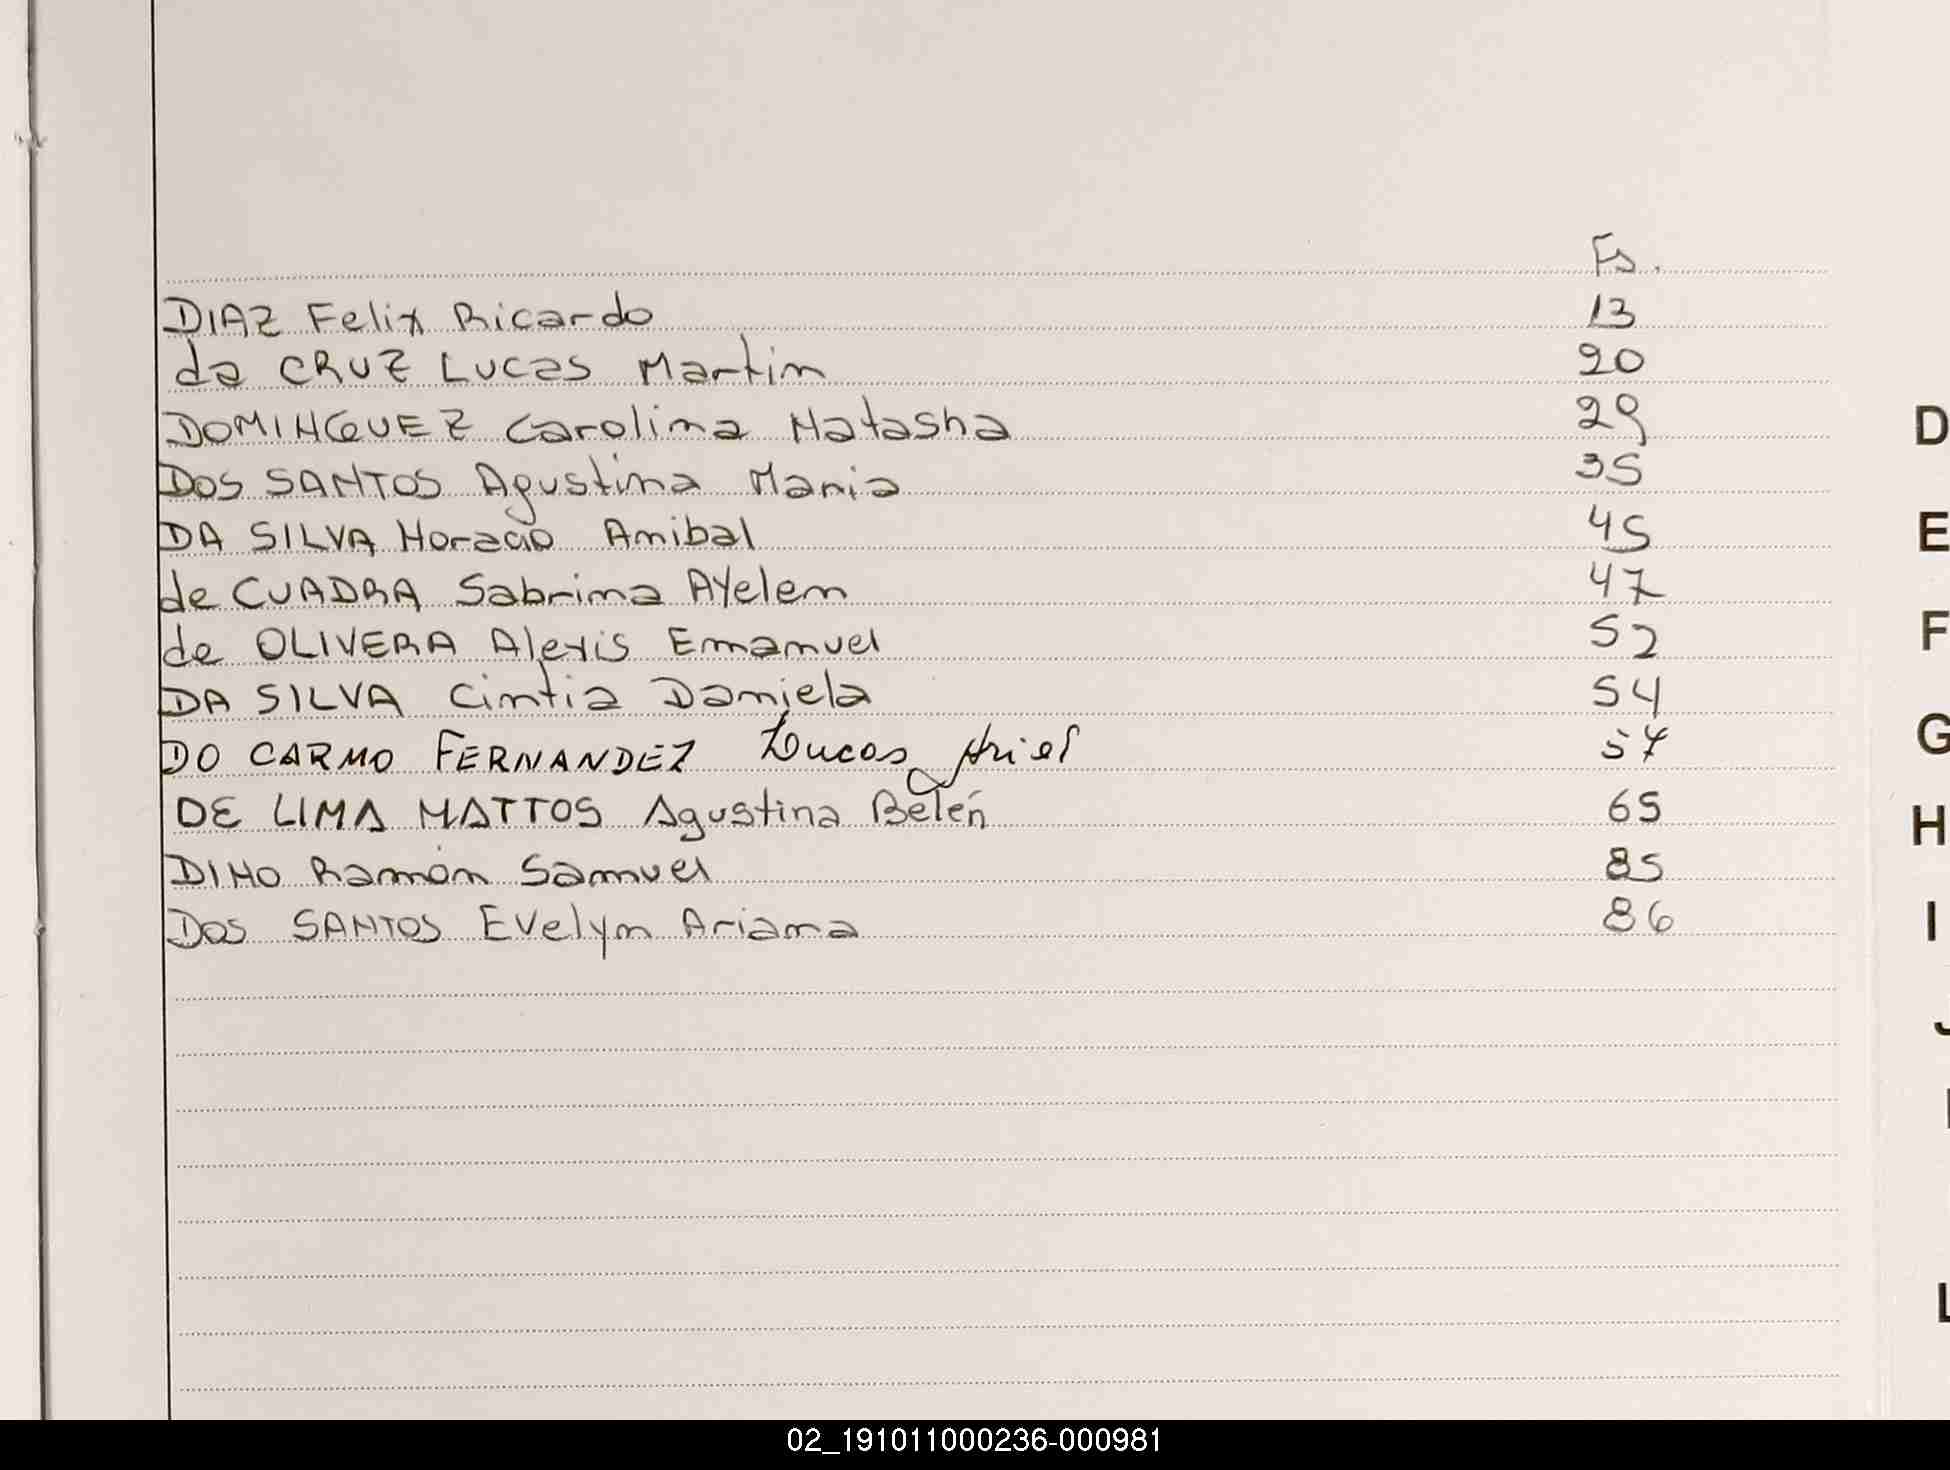 Fs.
DIAZ Felix Ricardo 13
da CRUZ Lucas Martin 20
DOMINGUEZ Carolina Natasha 29
DOS SANTOS Agustina Maria 35
DA SILVA Horacio Anibal 45
de CUADRA Sabrina Ayelen 47
de OLIVERA Alexis Emanuel 52
DA SILVA Cintia Daniela 54
DO CARMO FERNANDEZ Lucas Ariel 57
DE LIMA MATTOS Agustina Belén 65
DINO Ramón Samuel 85
DOS SANTOS Evelyn Ariana 86
D
E
F
G
H
I
J
L
02_191011000236-000981